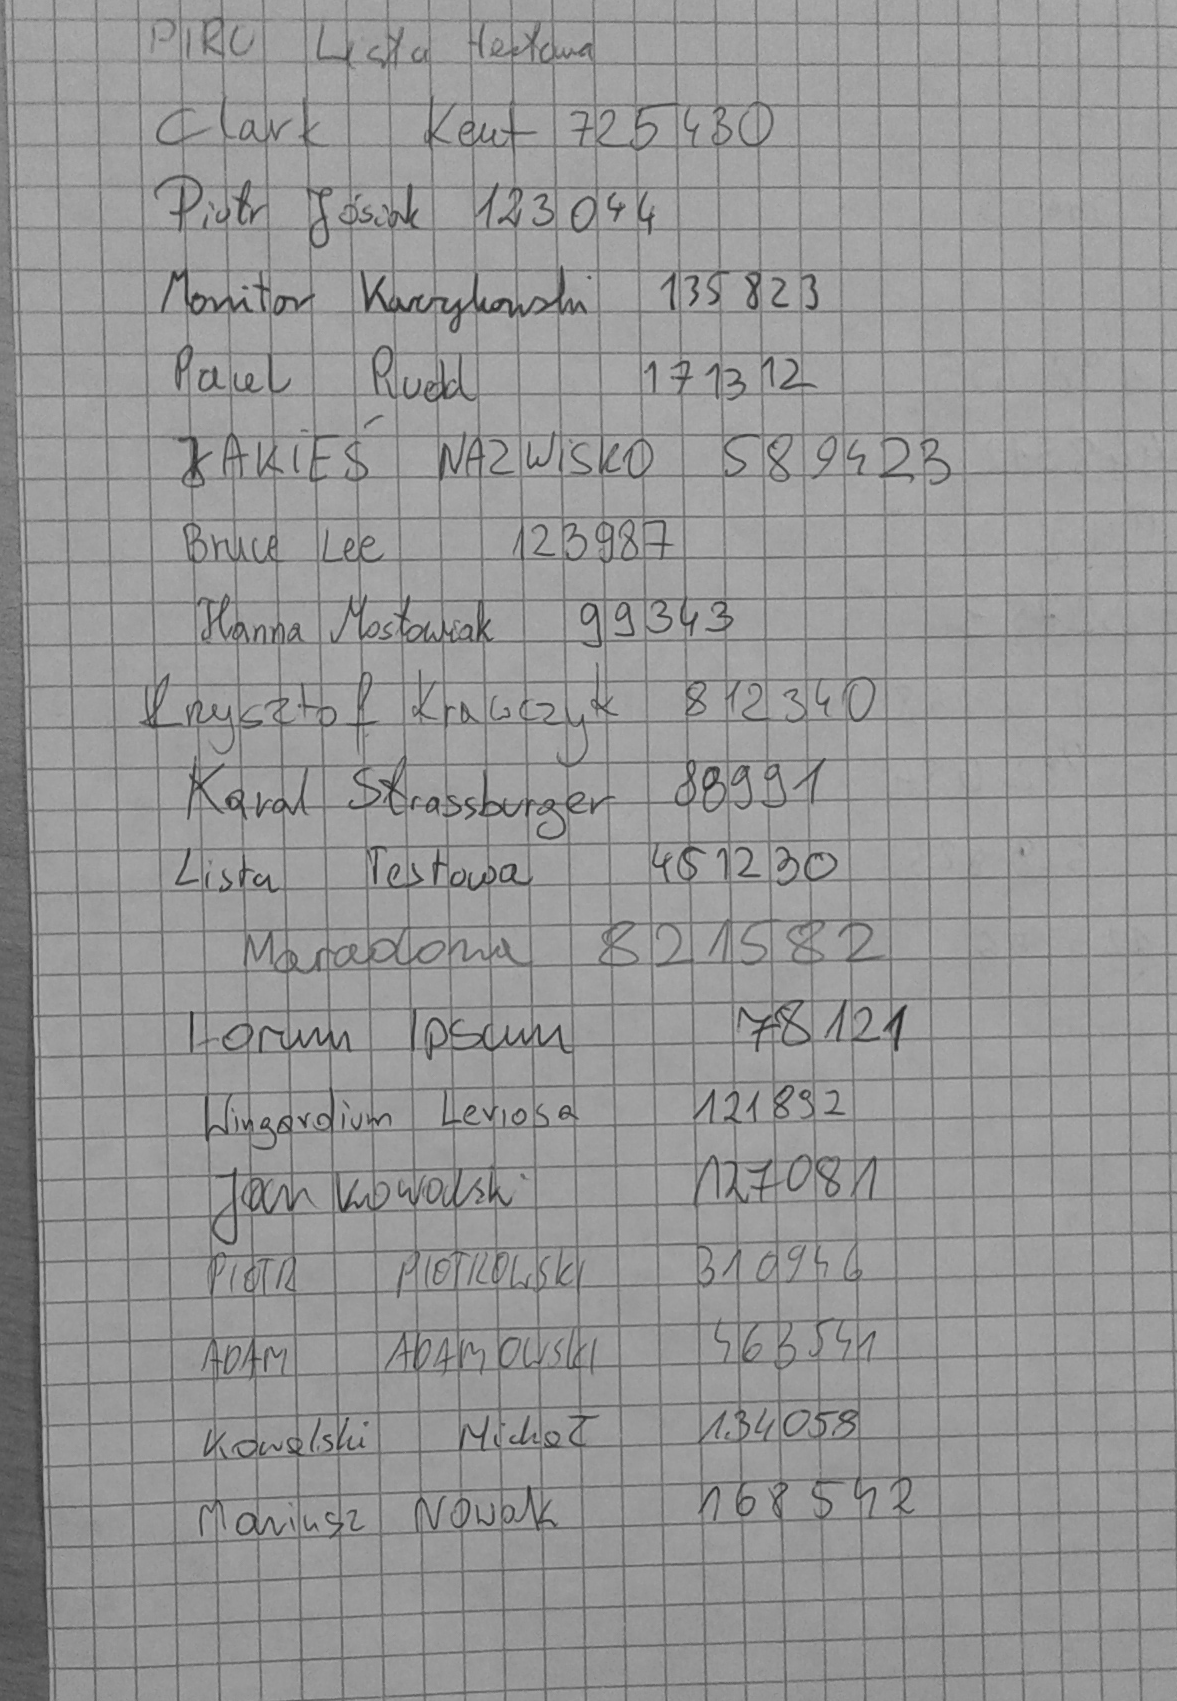 PIRO Lista testowa
Clark Kent 725430
Piotr Jósiak 123044
Monitor Kaczykowski 135823
Paul Rudd 171312
JAKIEŚ NAZWiSKO 589423
Bruce Lee 123987
Hanna Mostowiak 99343
Krzysztof Krawczyk 812340
Karal Strassburger 88991
Lista Testowa 451230
Maradona 821582
Lorum Ipsum 78121
Wingardium Leviosa 121892
Jan Kowalski 127081
PIOTR PIOTROWSKI 310946
ADAM ADAMOWSKI 463541
Kowalski Michał 134058
Mariusz Nowak 168542